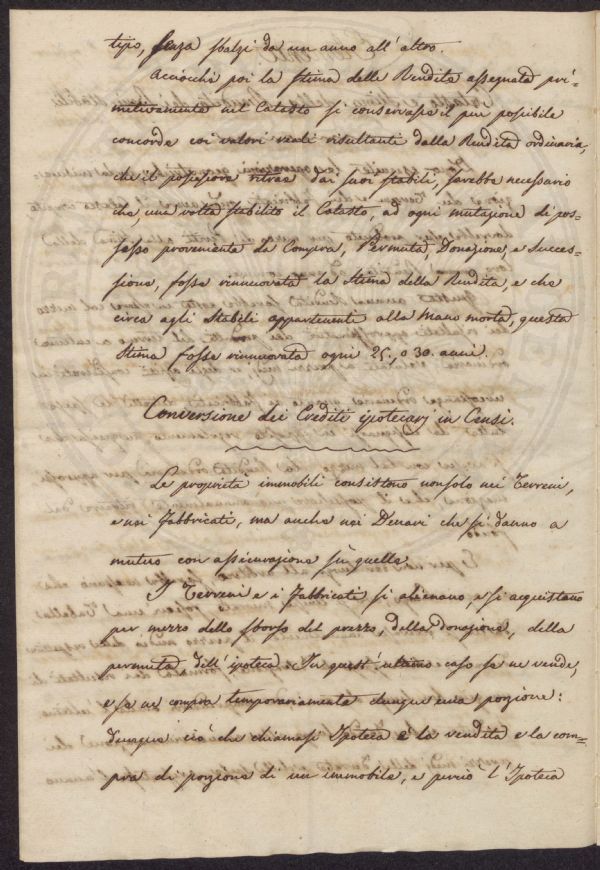 tizio, senza sbalzi da un anno all'altro.
Acciochè poi la stima della Rendita assegnata pri=
mitivamente nel Catasto si conservasse il più possibile
concorde coi valori reali risultanti dalla Rendita ordinaria,
che il possessore ritrae dai suoi stabili, sarebbe necessario
che, una volta stabilito il Catasto, ad ogni mutazione di pos=
sesso proveniente da Compra, Permuta, Donazione, e Succes=
sione, fosse rinnuovata la Stima della Rendita, e che
circa agli Stabili appartenenti alla Mano morta, questa
Stima fosse rinnuovata ogni 25, o 30 anni.
Conversione dei Crediti ipotecarj in Censi.
Le proprietà immobili consistono non solo nei Terreni,
e nei Fabbricati, ma anche nei Denari che si danno a
mutuo con assicurazione su quelle.
I Terreni e i Fabbricati si alienano, e si acquistano
per mezzo dello sborso del prezzo, della donazione, della
permuta dell'ipoteca. In quest'ultimo caso se ne vende,
e se ne compra temporariamente dunque una porzione:
dunque ciò che chiamasi Ipoteca è la vendita e la com=
pra di porzione di un immobile, e perciò l'Ipoteca